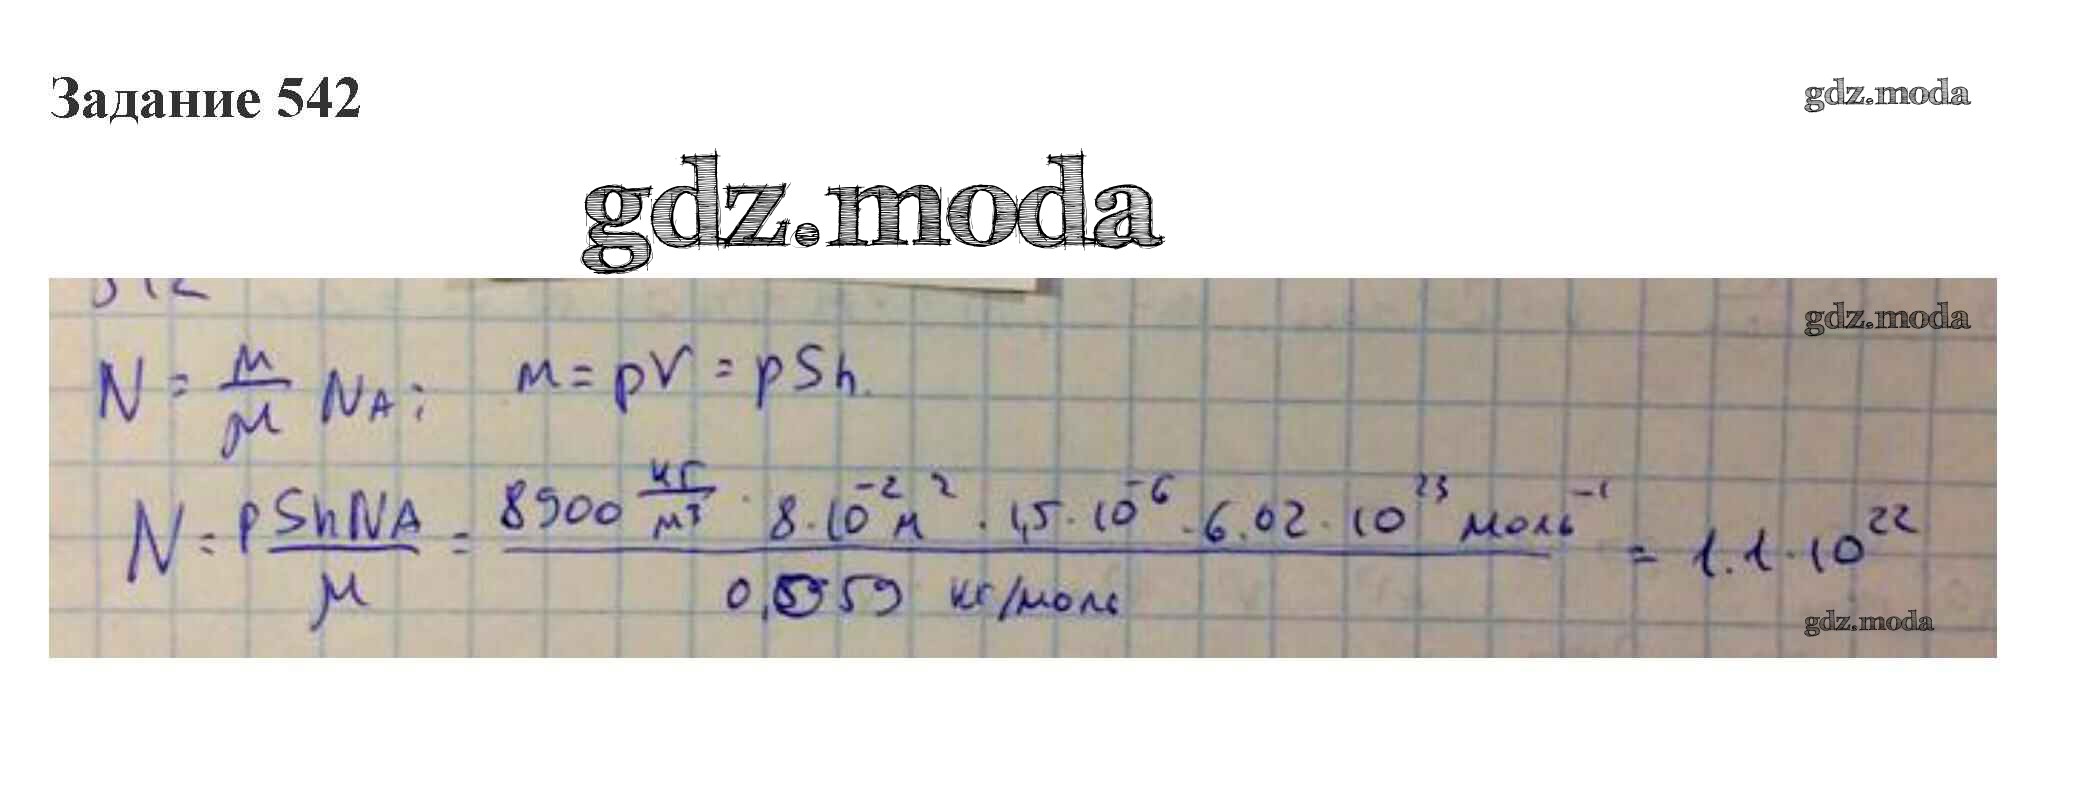 Задание 542
gdz.moda
gdz.moda
gdz.moda
N = м/μ NA; м = ρV = ρSh.
N = ρShNA/μ = 8900 кг/м³ · 8·10⁻² м² · 1,5·10⁻⁶ · 6.02·10²³ моль⁻¹ / 0,059 кг/моль = 1.1·10²²
gdz.moda